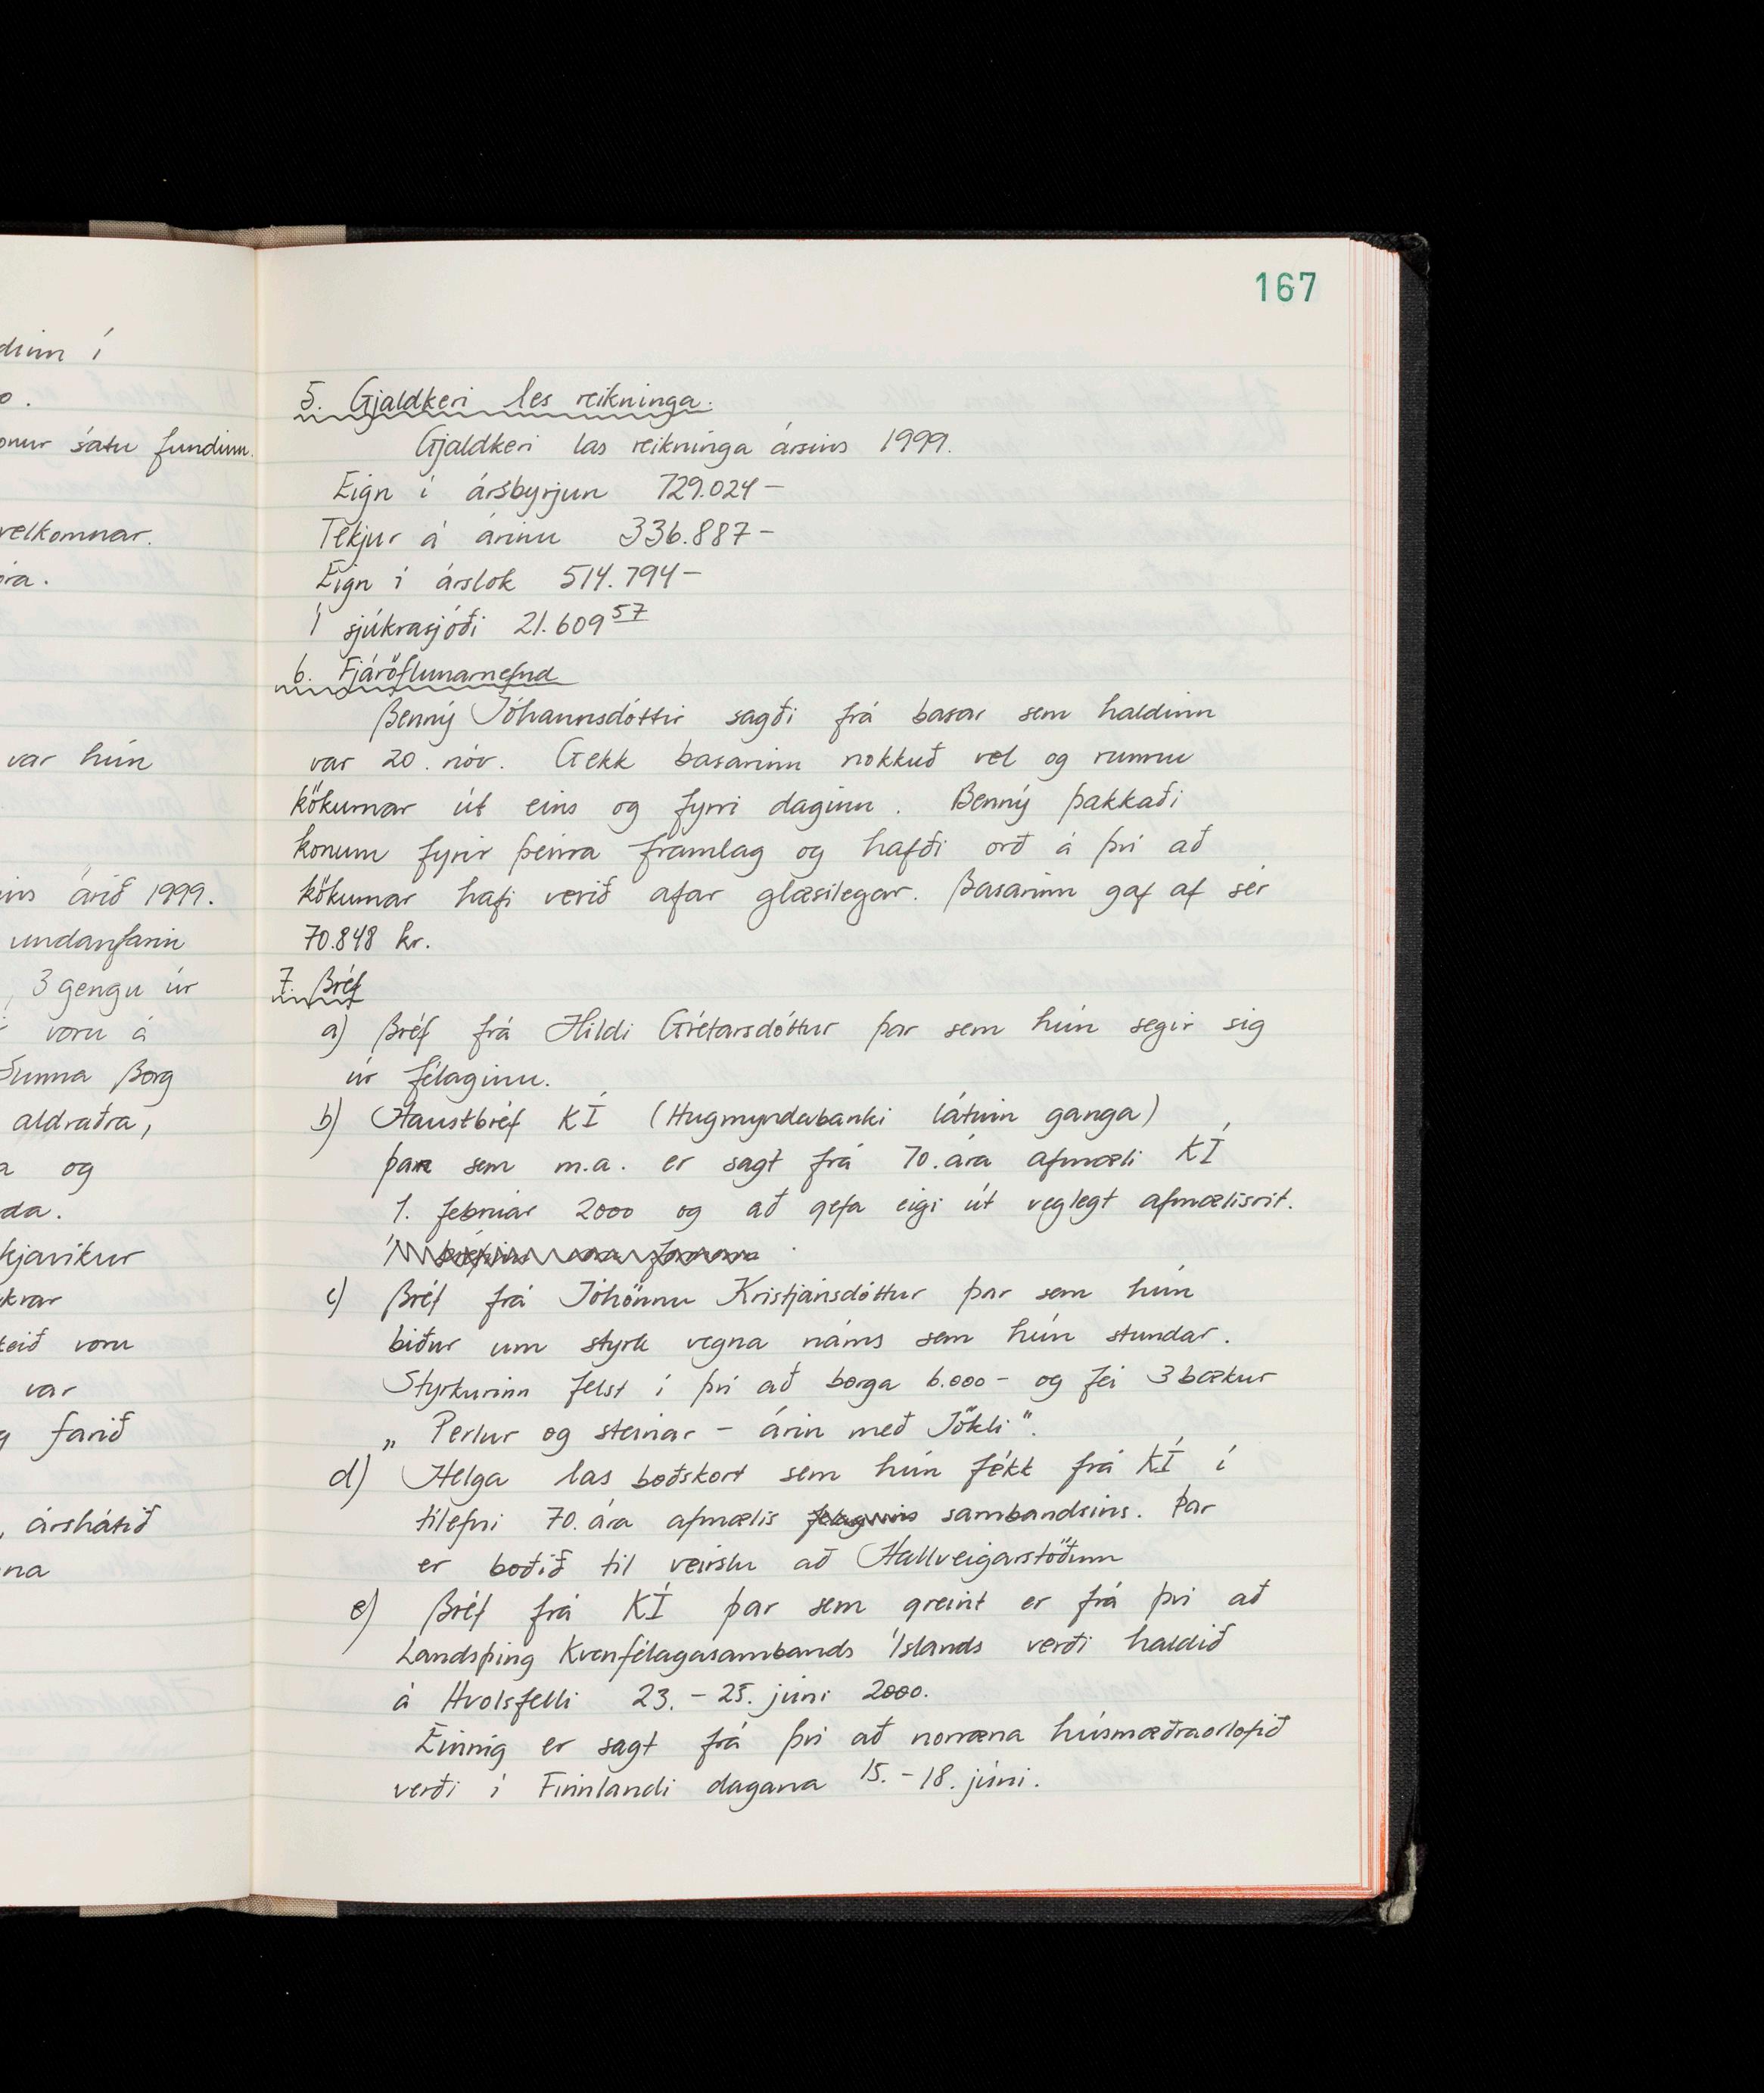 dinn í
o.
onur sátu fundinn.
velkomnar.
óra.
var hún
ins árið 1999.
undanfarin
, 3 gengu úr
voru á
Sunna Borg
aldraðra,
a og
da.
kjavíkur
krar
teið voru
var
g farið
, árshátíð
na
167
5. Gjaldkeri les reikninga.
Gjaldkeri las reikninga ársins 1999.
Eign í ársbyrjun 729.024-
Tekjur á árinu 336.887-
Eign í árslok 514.794-
Í sjúkrasjóði 21.609 57
6. Fjáröflunarnefnd
Benný Jóhannsdóttir sagði frá basar sem haldinn
var 20. nóv. Gekk basarinn nokkuð vel og runnu
kökurnar út eins og fyrri daginn. Benný þakkaði
konum fyrir þeirra framlag og hafði orð á því að
kökurnar hafi verið afar glæsilegar. Basarinn gaf af sér
70.848 kr.
7. Bréf
a) Bréf frá Hildi Grétarsdóttur þar sem hún segir sig
úr félaginu.
b) Haustbréf KÍ (Hugmyndabanki látinn ganga)
þar sem m.a. er sagt frá 70. ára afmæli KÍ
1. febrúar 2000 og að gefa eigi út veglegt afmælisrit.
Í bréfinu
c) Bréf frá Jóhönnu Kristjánsdóttur þar sem hún
biður um styrk vegna náms sem hún stundar.
Styrkurinn felst í því að borga 6.000- og fá 3 bækur
„Perlur og steinar - árin með Jökli".
d) Helga las boðskort sem hún fékk frá KÍ í
tilefni 70. ára afmælis félagsins sambandsins. Þar
er boðið til veirslu að Hallveigarstöðum
e) Bréf frá KÍ þar sem greint er frá því að
Landsþing Kvenfélagasambands Íslands verði haldið
á Hvolsfelli 23. - 25. júní 2000.
Einnig er sagt frá því að norræna húsmæðraorlofið
verði í Finnlandi dagana 15. - 18. júní.